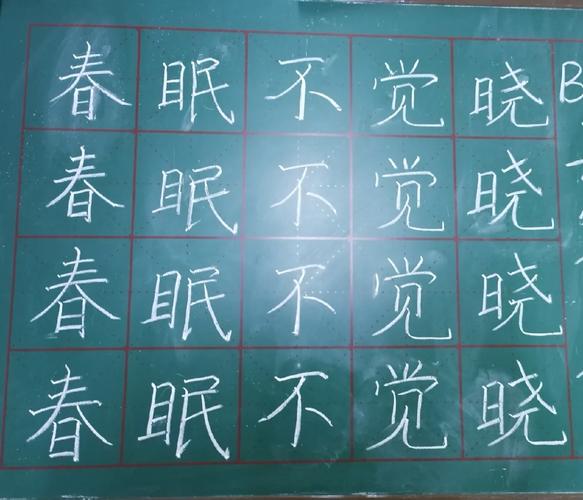 春眠不觉晓 B
春眠不觉晓
春眠不觉晓
春眠不觉晓